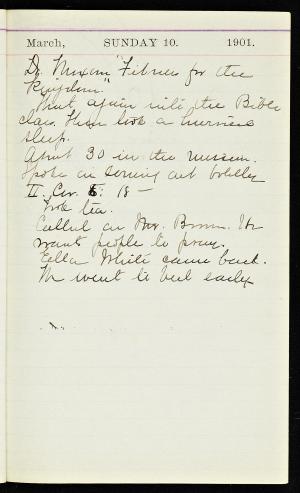 March, SUNDAY 10. 1901.
Dr. "Fitness for the
Kingdom."
Met again with the Bible
class. Then took a
sleep.
About 30 in the mission.
Spoke on coming out boldly
II. Cor. 6: 18 —
Took tea.
Called on Mr. Brown. He
wants people to pray.
Ella White came back.
We went to bed early